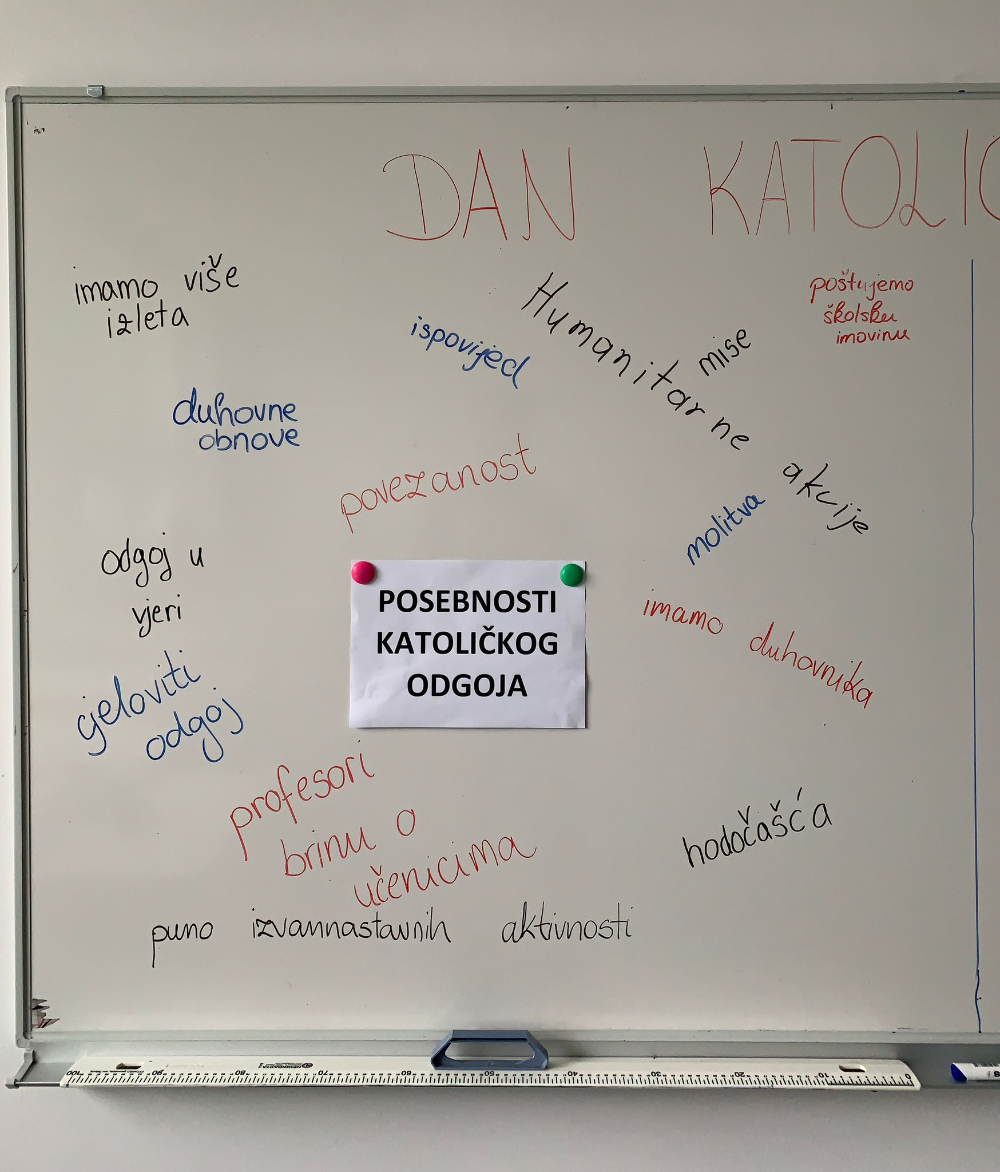 DAN KATOLIC
imamo više
izleta
ispovijed
Humanitarne akcije
mise
poštujemo
školsku
imovinu
duhovne
obnove
povezanost
molitva
odgoj u
vjeri
POSEBNOSTI
KATOLIČKOG
ODGOJA
imamo duhovnika
cjeloviti
odgoj
profesori
brinu o
učenicima
hodočašća
puno izvannastavnih aktivnosti
100 90 80 70 60 50 40 30 20 10 0